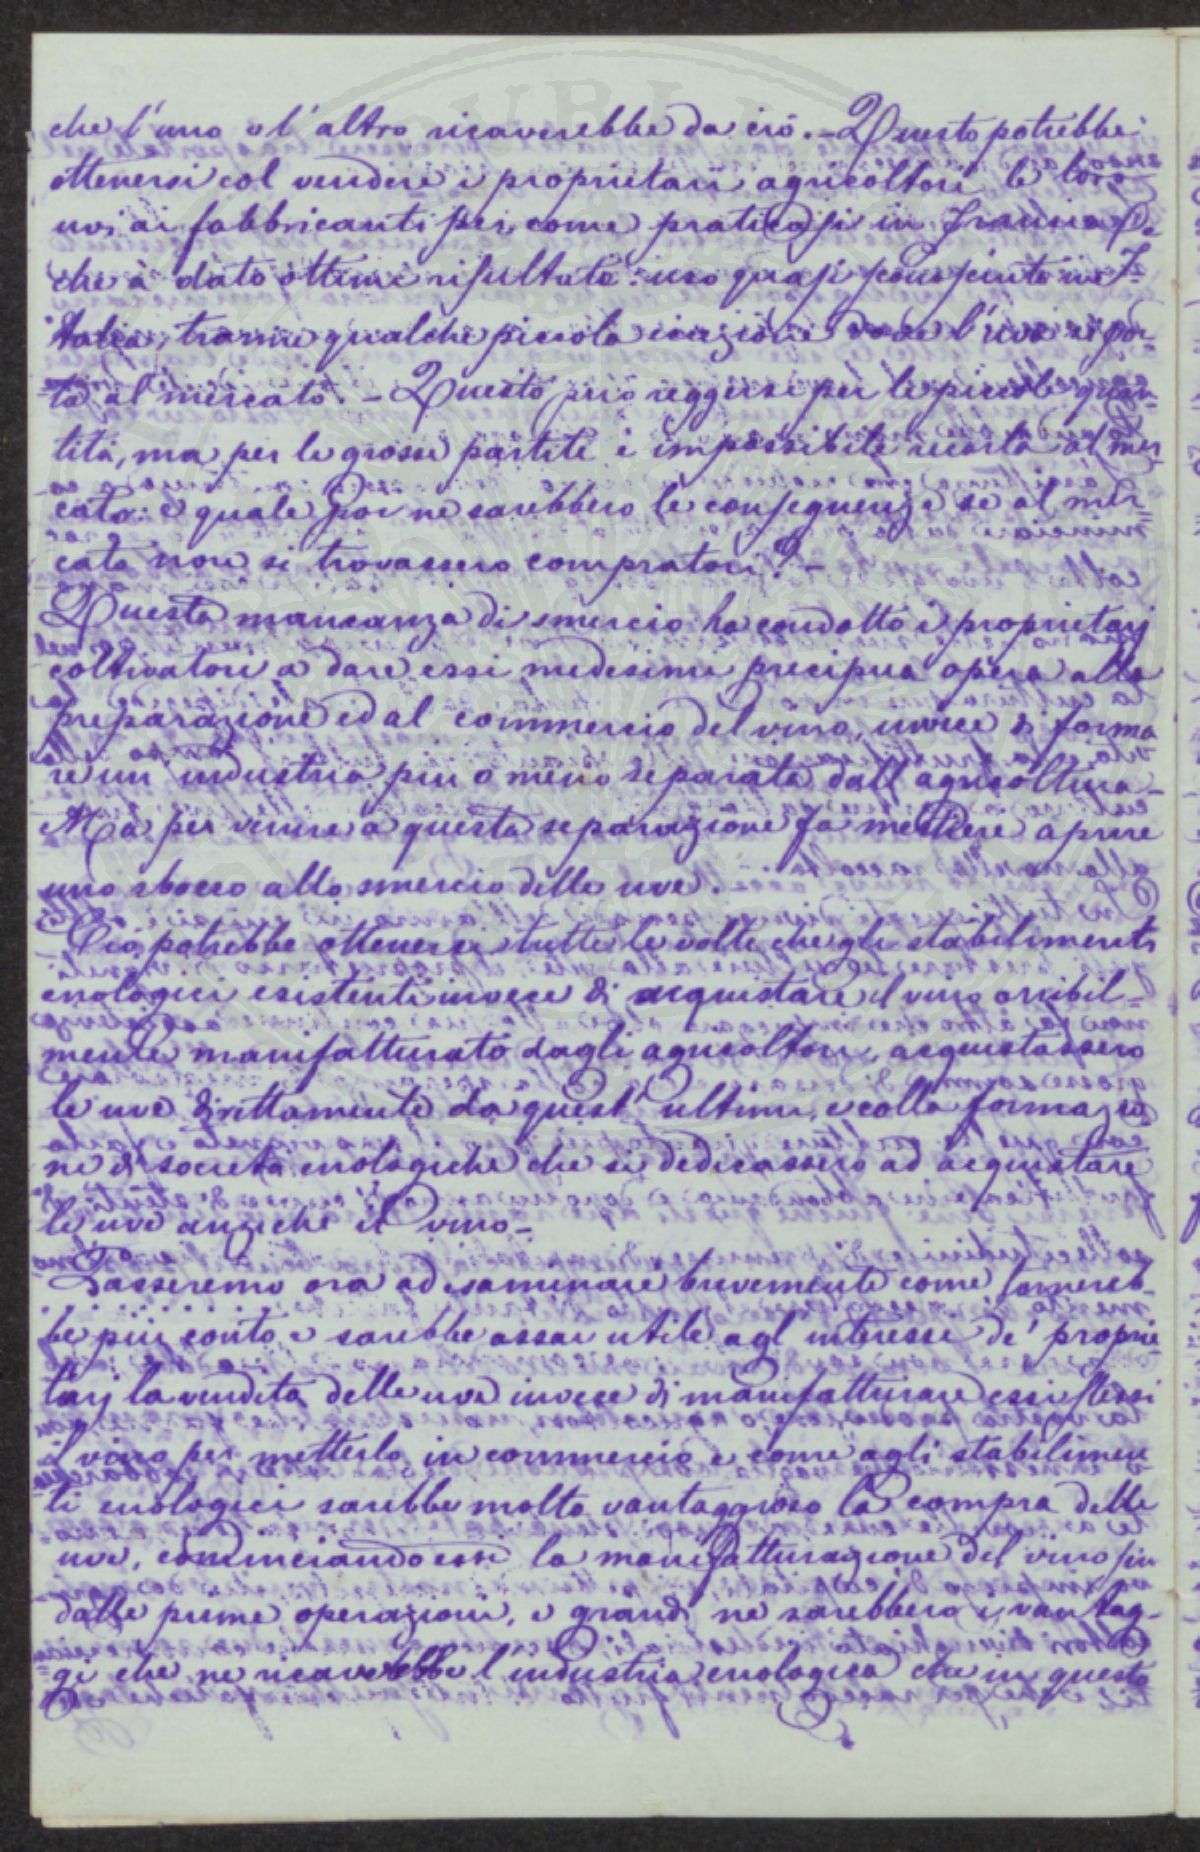 che l'uno o l'altro ricaverebbe da ciò. – Questo potrebbe
ottenersi col vendere i proprietarii agricoltori le loro
uve ai fabbricanti per, come praticasi in Francia, e
che à dato ottimi risultati: uso quasi sconosciuto in I-
talia, tranne qualche piccola eccezione dove l'uva si por-
ta al mercato. – Questo può reggersi per le piccole quan-
tità, ma per le grosse partite è impossibile recarla al mer-
cato: e quale poi ne sarebbero le conseguenze se al mer-
cato non si trovassero compratori? –
Questa mancanza di smercio ha condotto i proprietarj
coltivatori a dare essi medesimi precipua opera alla
preparazione ed al commercio del vino, invece di forma
re un industria più o meno separata dall'agricoltura –
Ma per venire a questa separazione fa mestiere aprire
uno sbocco allo smercio delle uve.
Ciò potrebbe ottenersi tutte le volte che gli stabilimenti
enologici esistenti invece di acquistare il vino orribil-
mente manifatturato dagli agricoltori, acquistassero
le uve direttamente da quest'ultimi, e colla formazio
ne di società enologiche che si dedicassero ad acquistare
le uve anziche il vino –
Passeremo ora ad esaminare brevemente come tornereb-
be più conto e sarebbe assai utile agl'interessi de' proprie
tarj la vendita delle uve invece di manifatturare essi stessi
il vino per metterlo in commercio e come agli stabilimen
ti enologici sarebbe molto vantaggioso la compra delle
uve, cominciando essi la manifatturazione del vino fin
dalle prime operazioni, e grandi ne sarebbero i vantag-
gi che ne ricaverebbe l'industria enologica che in questo